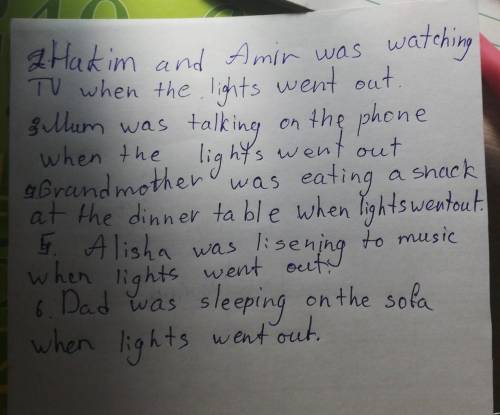 2Hakim and Amir was watching
TV when the lights went out.
3Mum was talking on the phone
when the lights went out
4Grandmother was eating a snack
at the dinner table when lights went out.
5. Alisha was lisening to music
when lights went out.
6. Dad was sleeping on the sofa
when lights went out.